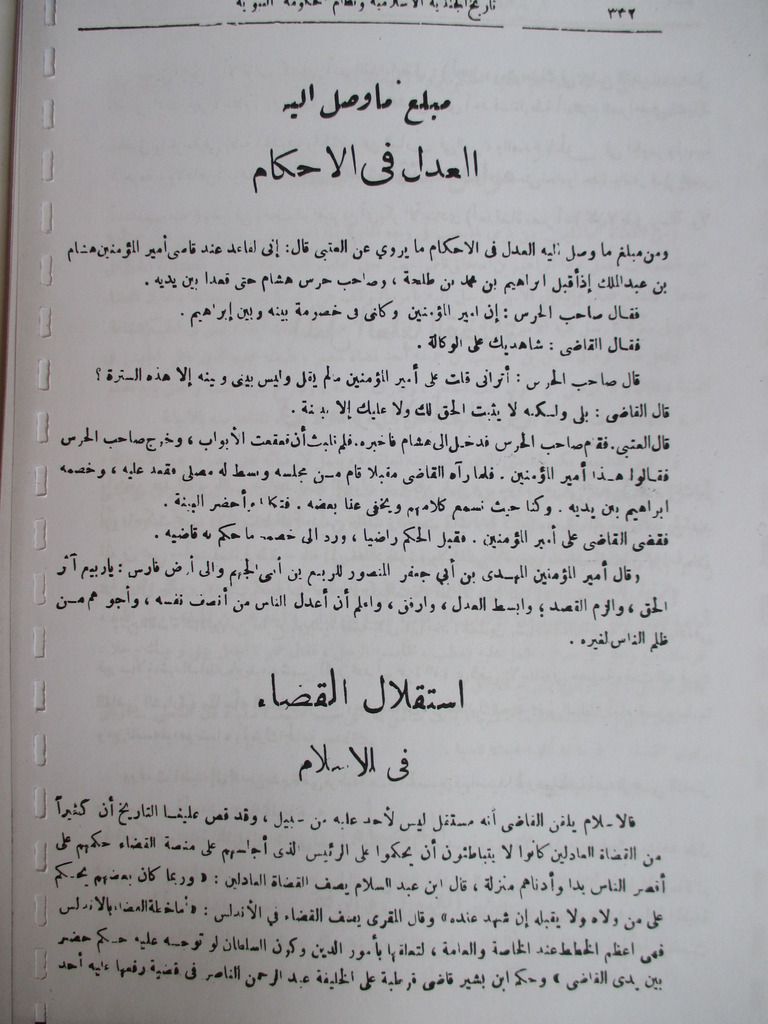 ٣٣٢ تاريخ الجندية الاسلامية ونظام حكومة النبوية
مبلغ ماوصل اليه
العدل فى الاحكام
ومن مبلغ ما وصل اليه العدل فى الاحكام ما يروي عن العتبى قال: إنى لقاعد عند قاضى أمير المؤمنين هشام
بن عبدالملك إذأقبل ابراهيم بن محمد بن طلحة ، وصاحب حرس هشام حتى قعدا بين يديه .
فقال صاحب الحرس : إن امير المؤمنين وكلنى فى خصومة بينه وبين إبراهيم .
فقال القاضى : شاهديك على الوكالة .
قال صاحب الحرس : أترانى قلت على أمير المؤمنين مالم يقل وليس بينى وبينه إلا هذه السترة ؟
قال القاضى : بلى ولكنه لا يثبت الحق لك ولا عليك إلا ببينة .
قال العتبى. فقام صاحب الحرس فدخل الى هشام فاخبره. فلم نلبث أن قعقعت الأبواب ، وخرج صاحب الحرس
فقالوا هذا أمير المؤمنين . فلما رآه القاضى مقبلا قام من مجلسه وبسط له مصلى فقعد عليه ، وخصمه
ابراهيم بين يديه . وكنا حيث نسمع كلامهم ويخفى عنا بعضه . فتكلما وأحضر البينة .
فقضى القاضى على أمير المؤمنين . فقبل الحكم راضيا ، ورد الى خصمه ما حكم به قاضيه .
وقال أمير المؤمنين المهدى بن أبي جعفر المنصور للربيع بن أبى الجهم والى أرض فارس : ياربيع آثر
الحق ، والزم القصد ؛ وابسط العدل ، وارفق ، واعلم أن أعدل الناس من أنصف نفسه ، وأجورهم من
ظلم الناس لغيره .
استقلال القضاء
فى الاسلام
فالاسلام يلقن القاضى أنه مستقل ليس لأحد عليه من سبيل ، وقد قص علينا التاريخ أن كثيراً
من القضاة العادلين كانوا لا يتباطئون أن يحكموا على الرئيس الذى أجلسهم على منصة القضاء حكمهم على
أقصر الناس يدا وأدناهم منزلة ، قال ابن عبد السلام يصف القضاة العادلين : « وربما كان بعضهم يحكم
على من ولاه ولا يقبله إن شهد عنده» وقال المقرى يصف القضاء في الأندلس : «أما خطة القضاء بالاندلس
فهى اعظم الخطط عند الخاصة والعامة ، لتعلقها بأمور الدين وكون السلطان لو توجه عليه حكم حضر
بين يدى القاضى » وحكم ابن بشير قاضى قرطبة على الخليفة عبد الرحمن الناصر فى قضية رفعها عليه أحد